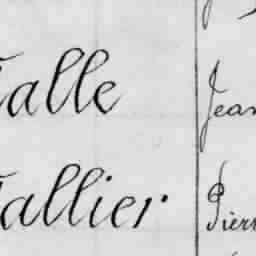 Talle Jean
Tallier Pierr